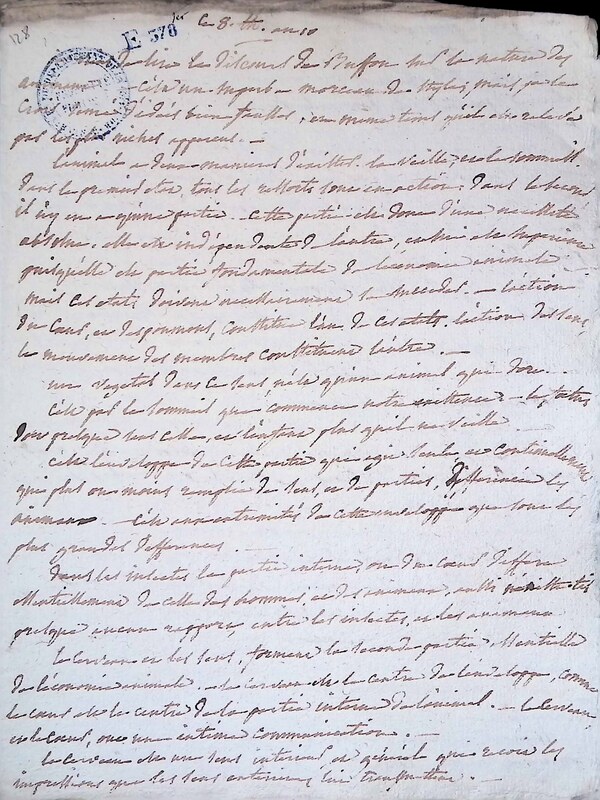 128
E 378
ce 8. th. an 10
lire le Discours de Buffon sur la nature des
animaux. C'est un superbe morceau de style, mais je le
crois semé d'idées bien fausses, en même tems qu'il est
pas les plus riches apperçus. —
L'animal a deux manieres d'exister. la veille, et le sommeil.
dans le premier état, tous les ressorts sont en action; dans le second
il n'y en a qu'une partie. cette partie est donc d'une necessité
absolue. elle est indépendante de l'autre, celle est superieure
puisqu'elle est partie fondamentale de l'économie animale.
mais ces états doivent necessairement se succeder. — l'action
du cœur, et des poumons, constitue l'un de ces etats. l'action des sens,
le mouvement des membres constituent l'autre. —
un vegetal dans ce sens, n'est qu'un animal qui dort. —
C'est par le sommeil que commence notre existence. — le fœtus
dort presque sans cesse, et l'enfant plus qu'il ne veille.
C'est l'enveloppe de cette partie qui agit seule, et continuellement
qui plus ou moins remplie de sens, et de parties, differencie les
animaux. — C'est aux extremités de cette enveloppe que sont les
plus grandes differences.
dans les insectes la partie interne, ou du cœur differe
essentiellement de celle des hommes, et des animaux, aussi n'existe-t-il
presque aucun rapport, entre les insectes, et les animaux
Le cerveau et les sens, forment la seconde partie essentielle
de l'économie animale. — le cerveau est le centre de l'enveloppe, comme
le cœur est le centre de la partie interne de l'animal. — le cerveau
et le cœur, ont une intime communication. —
le cerveau est un sens interieur, et général qui reçoit les
impressions que les sens exterieurs lui transmettent. —